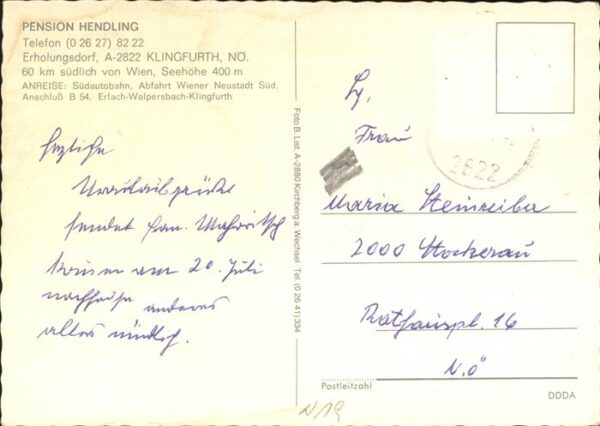 PENSION HENDLING
Telefon (0 26 27) 82 22
Erholungsdorf, A-2822 KLINGFURTH, NÖ.
60 km südlich von Wien, Seehöhe 400 m
ANREISE: Südautobahn, Abfahrt Wiener Neustadt Süd.
Anschluß B 54, Erlach-Walpersbach-Klingfurth
Herzliche
Urlaubsgrüße
sendet Fam.
kommen am 20. Juli
nachhause anderes
alles mündlich.
Foto B. List, A-2880 Kirchberg a. Wechsel Tel. (0 26 41) 334
Frau
2822
Maria
2000 Stockerau
Rathauspl. 16
N.Ö
Postleitzahl
DDDA
N19